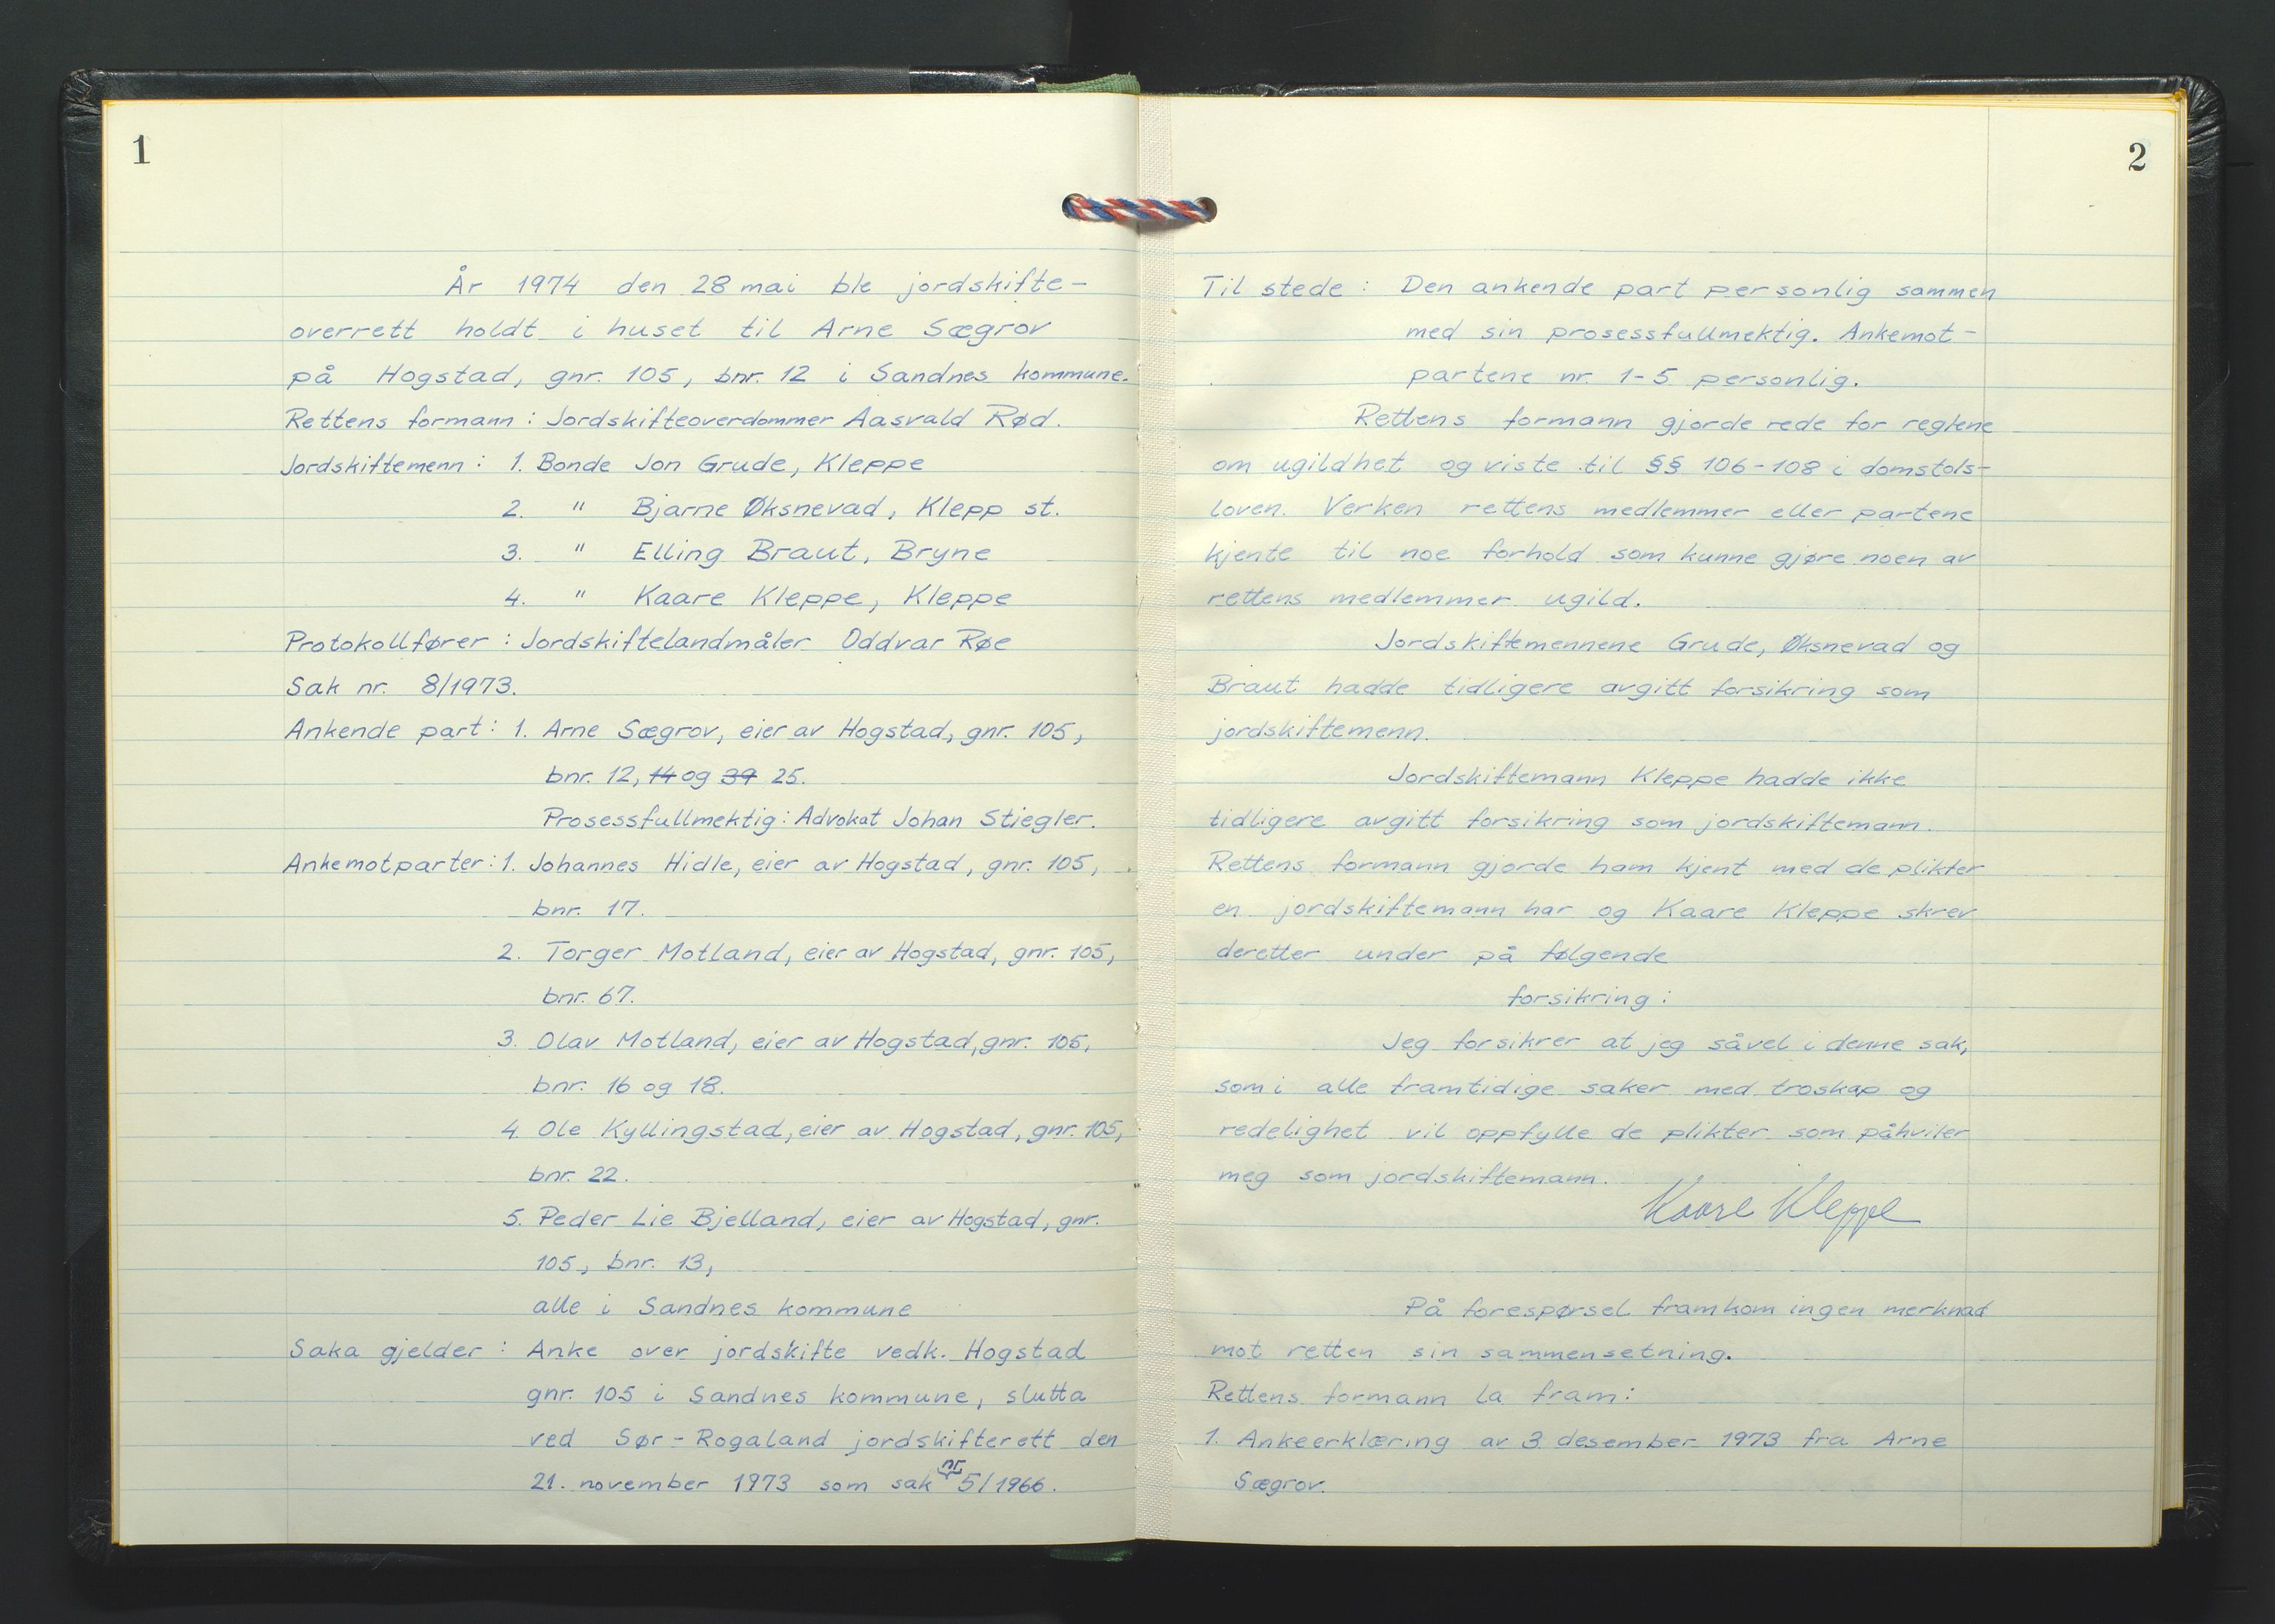 1
År 1974 den 28 mai ble jordskifte-
overrett holdt i huset til Arne Sægrov
på Hogstad, gnr. 105, bnr. 12 i Sandnes kommune.
Rettens formann : Jordskifteoverdommer Aasvald Rød.
Jordskiftemenn : 1. Bonde Jon Grude, Kleppe
2. " Bjarne Øksnevad, Klepp st.
3. " Elling Braut, Bryne
4. " Kaare Kleppe, Kleppe
Protokollfører : Jordskiftelandmåler Oddvar Røe
Sak nr. 8/1973.
Ankende part : 1. Arne Sægrov, eier av Hogstad, gnr. 105,
bnr. 12, 14 og 39 25.
Prosessfullmektig : Advokat Johan Stiegler.
Ankemotparter : 1. Johannes Hidle, eier av Hogstad, gnr. 105,
bnr. 17.
2. Torger Motland, eier av Hogstad, gnr. 105,
bnr. 67.
3. Olav Motland, eier av Hogstad, gnr. 105,
bnr. 16 og 18.
4. Ole Kyllingstad, eier av Hogstad, gnr. 105,
bnr. 22.
5. Peder Lie Bjelland, eier av Hogstad, gnr.
105, bnr. 13,
alle i Sandnes kommune
Saka gjelder : Anke over jordskifte vedk. Hogstad
gnr. 105 i Sandnes kommune, slutta
ved Sør-Rogaland jordskifterett den
21. november 1973 som sak nr 5/1966.
2
Til stede : Den ankende part personlig sammen
med sin prosessfullmektig. Ankemot-
partene nr. 1-5 personlig.
Rettens formann gjorde rede for reglene
om ugildhet og viste til §§ 106-108 i domstols-
loven. Verken rettens medlemmer eller partene
kjente til noe forhold som kunne gjøre noen av
rettens medlemmer ugild.
Jordskiftemennene Grude, Øksnevad og
Braut hadde tidligere avgitt forsikring som
jordskiftemenn.
Jordskiftemann Kleppe hadde ikke
tidligere avgitt forsikring som jordskiftemann.
Rettens formann gjorde ham kjent med de plikter
en jordskiftemann har og Kaare Kleppe skrev
deretter under på følgende
forsikring :
Jeg forsikrer at jeg såvel i denne sak,
som i alle framtidige saker med troskap og
redelighet vil oppfylle de plikter som påhviler
meg som jordskiftemann.
Kaare Kleppe
På forespørsel framkom ingen merknad
mot retten sin sammensetning.
Rettens formann la fram :
1. Ankeerklæring av 3. desember 1973 fra Arne
Sægrov.